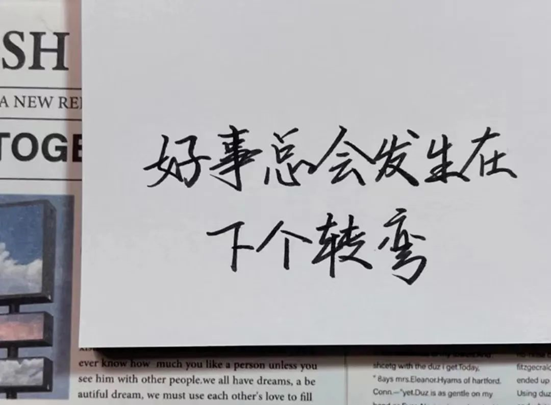 SH
A NEW RE
TOGE
好事总会发生在
下个转弯
ever know how much you like a person unless you
see him with other people.we all have dreams, a be
autiful dream, we must use each other's love to fill
shcatg with the duz i get.Today,
" 8ays mrs.Eleanor.Hyams of hartford.
Conn.—"yet.Duz is as gentle on my
fitzgecral
ended up
Using du